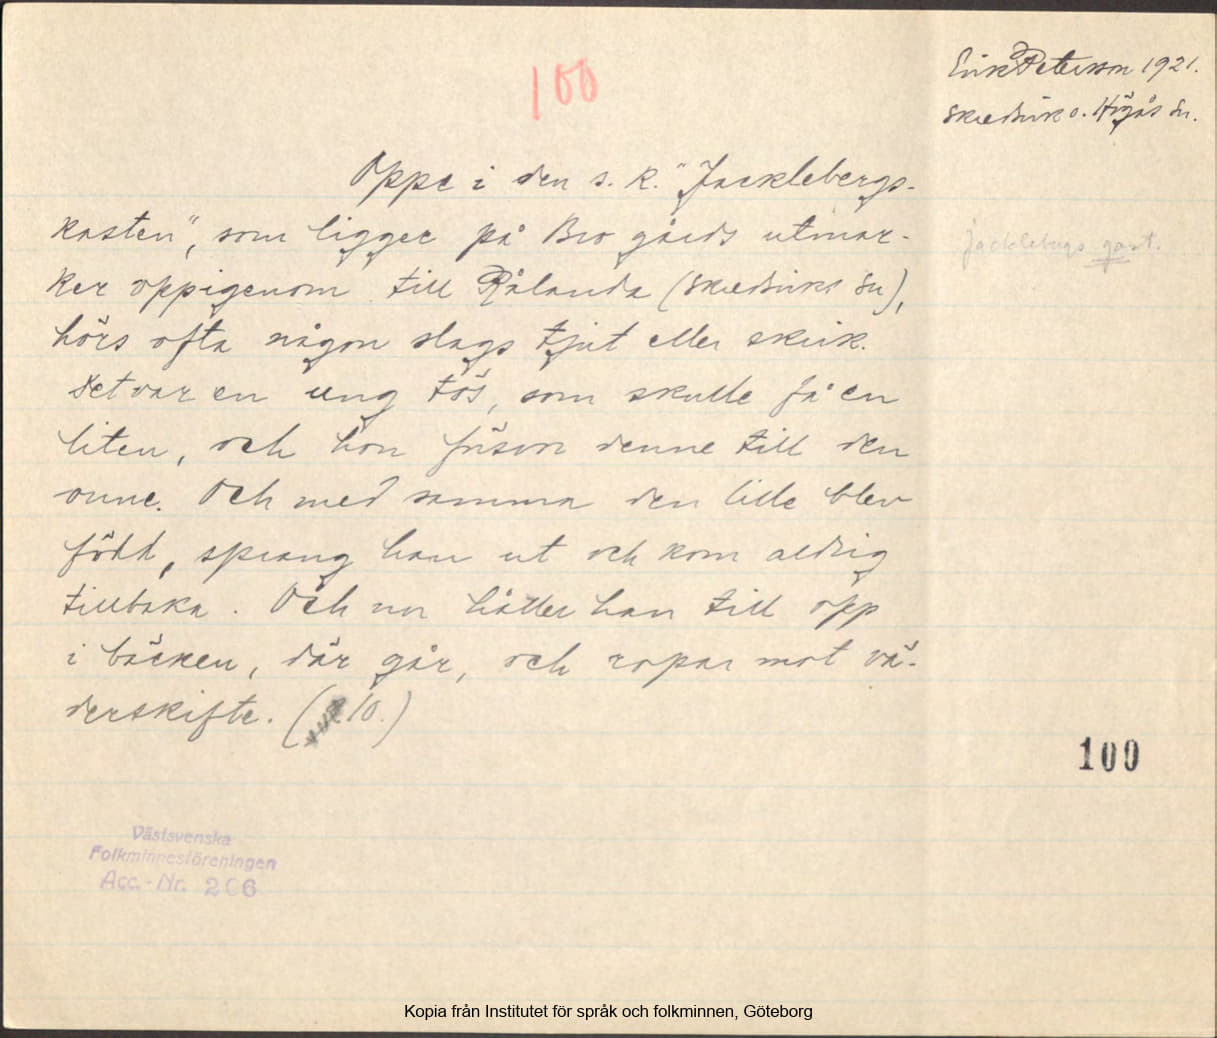 100
Erik Peterson 1921.
Skredsvik o. Högås sn.
Oppe i den s. k. "Jacklebergs-
kasten", som ligger på Bro gårds utmar-
ker oppigenom till Rålanda (Skredsviks sn),
hörs ofta någon slags tjut eller skrik.
Det var en ung tös, som skulle få en
liten, och hon försvor denne till den
onne. Och med samma den lille blev
född, sprang han ut och kom aldrig
tillbaka. Och nu håller han till opp
i bäcken, där går, och ropar mot vä-
derskifte. (10.)
Jacklebergs gast.
100
Västsvenska
Folkminnesföreningen
Acc.-Nr. 206
Kopia från Institutet för språk och folkminnen, Göteborg